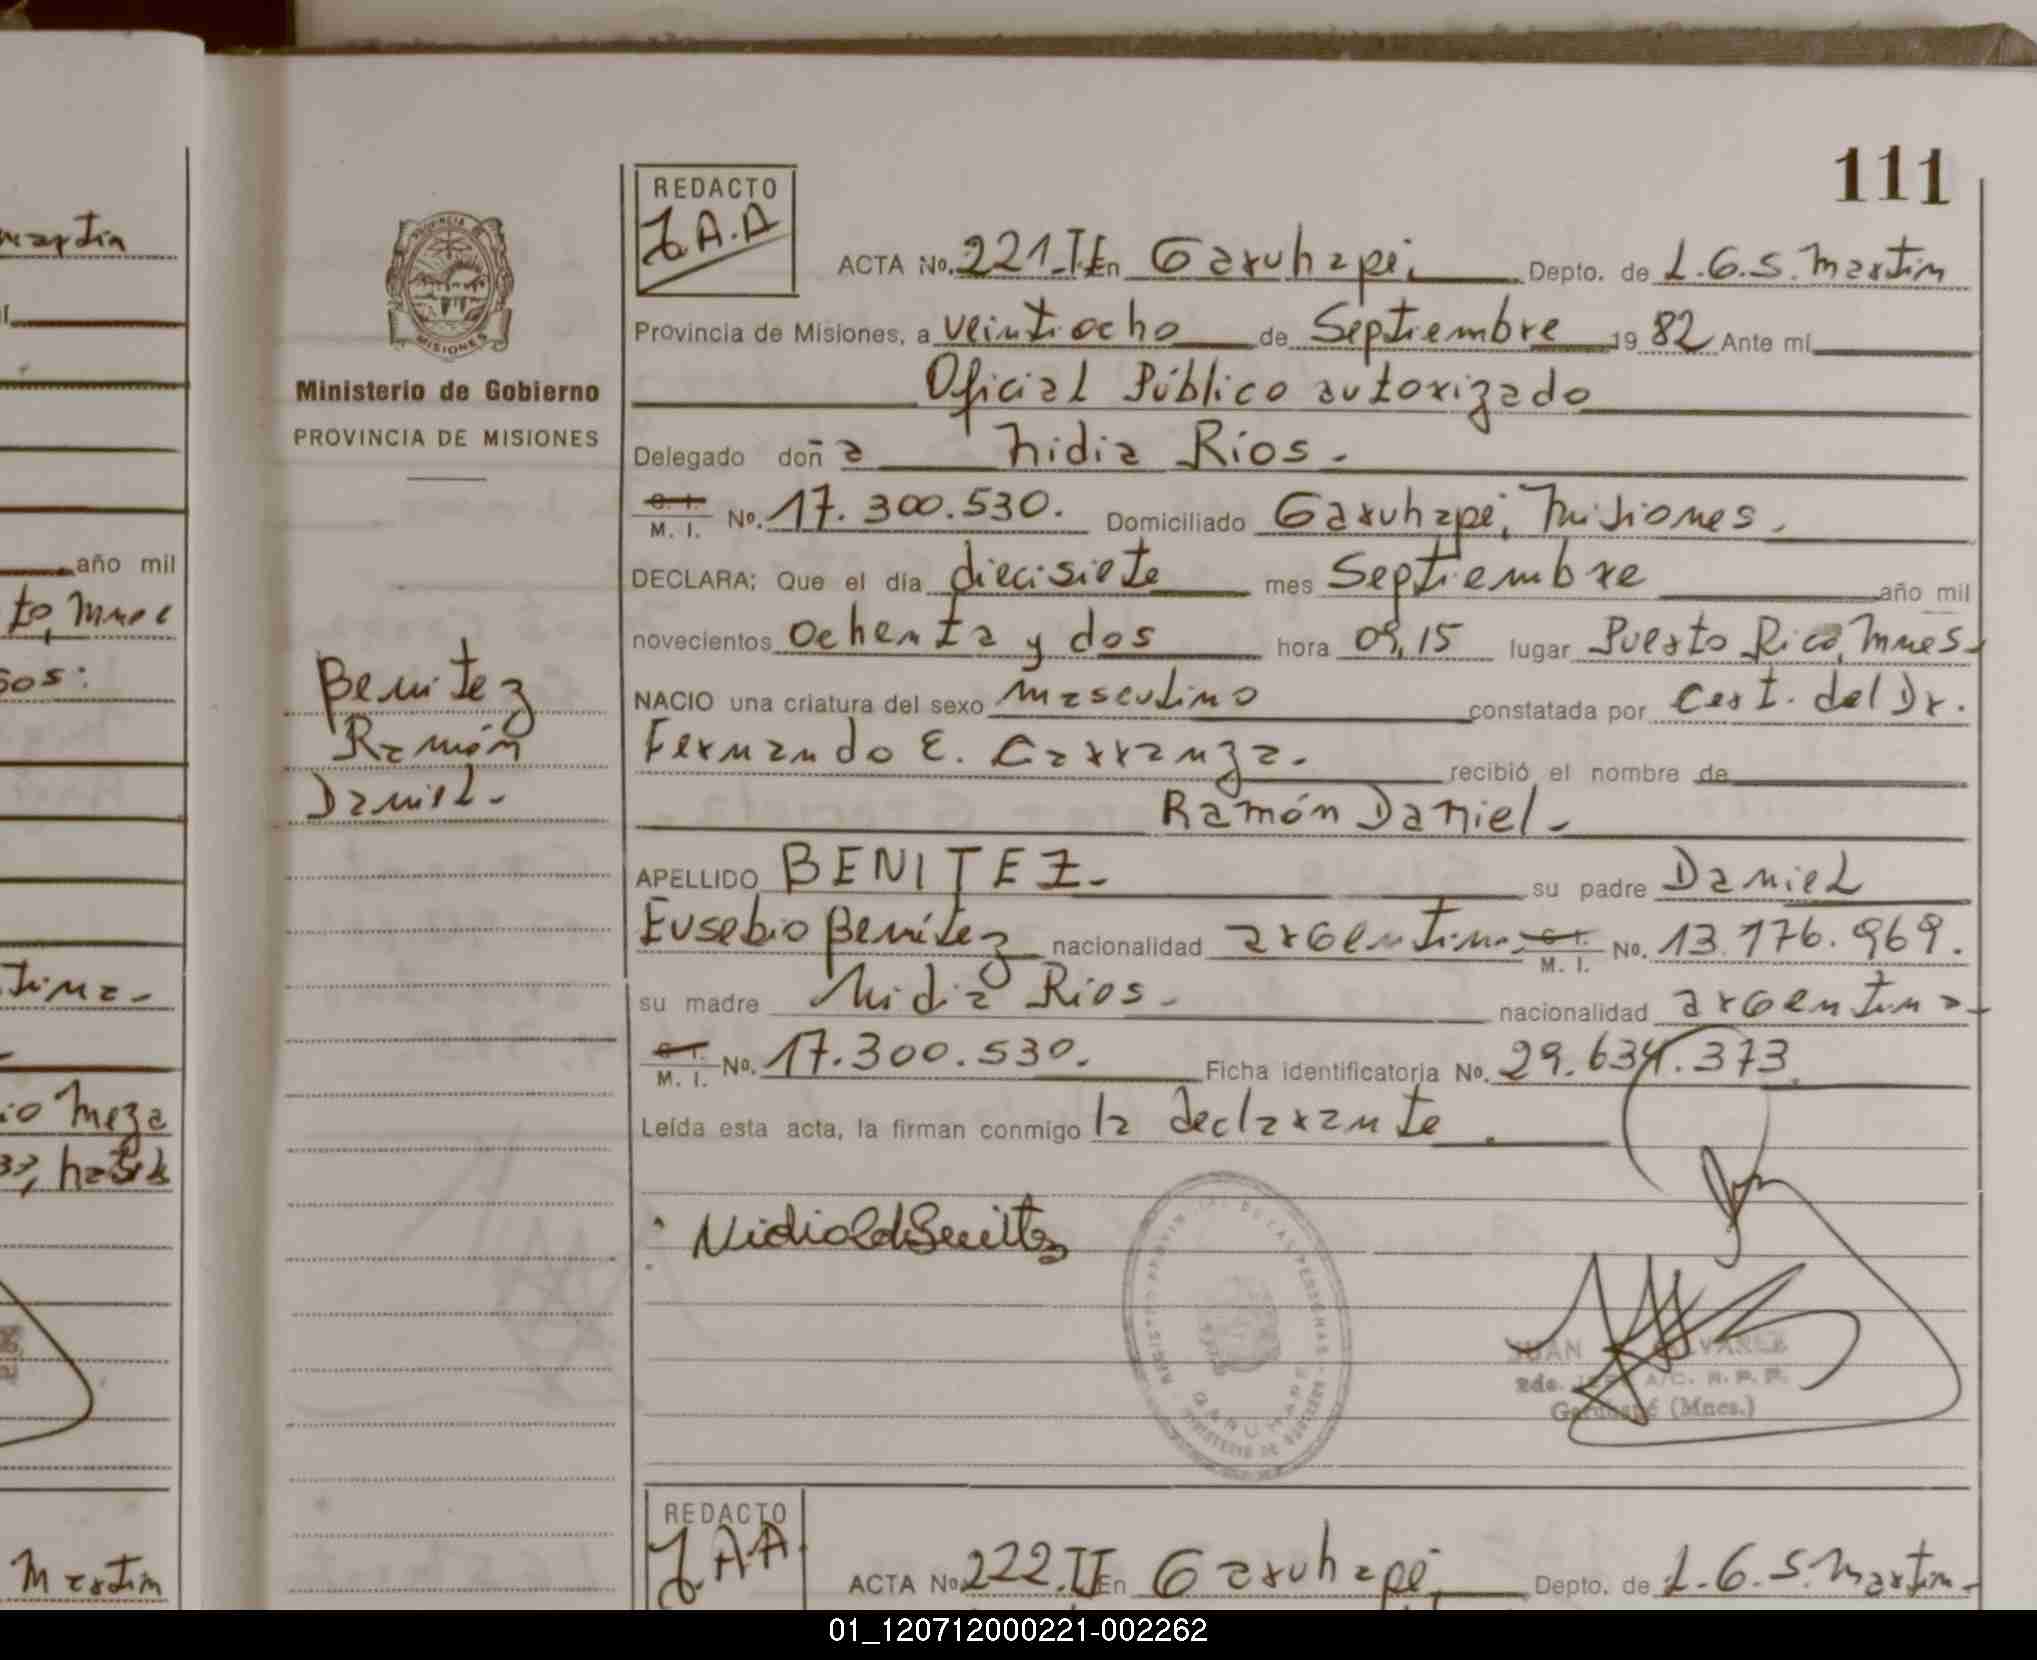 111
martin
año mil
to, Mnes
sos:
tina-
io Meza
hasta
Martin
PROVINCIA DE
MISIONES
Ministerio de Gobierno
PROVINCIA DE MISIONES
Benitez
Ramón
Daniel.-
REDACTO
J.A.A
ACTA No. 221.T En Garuhapé. Depto. de L.G.S. Martin
Provincia de Misiones, a veintiocho de Septiembre 19 82 Ante mí
Oficial Público autorizado
Delegado doña Nidia Ríos.-
C. I.
M. I. No. 17.300.530. Domiciliado Garuhapé, Misiones.
DECLARA: Que el día diecisiete mes Septiembre año mil
novecientos ochenta y dos hora 09,15 lugar Puerto Rico, Mnes-
NACIO una criatura del sexo masculino constatada por Cert. del Dr.
Fernando E. Carranza. recibió el nombre de
Ramón Daniel.-
APELLIDO BENITEZ- su padre Daniel
Eusebio Benítez nacionalidad argentino C. I. M. I. No. 13.176.969.
su madre Nidia Ríos.- nacionalidad argentina-
C. I.
M. I. No. 17.300.530. Ficha identificatoria No. 29.634.373.
Leída esta acta, la firman conmigo la declarante.
GARUHAPE
JUAN ALVAREZ
2do. A/C. R.P.P.
Garuhapé (Mnes.)
REDACTO
J.A.A.
ACTA No. 222.T En Garuhapé Depto. de L.G.S. Martin-
01_120712000221-002262